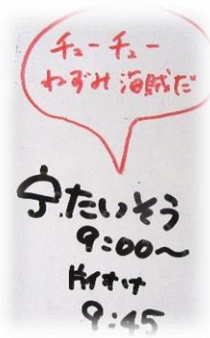 チューチュー
ねずみ海賊だ
たいそう
9:00～
片付け
9:45